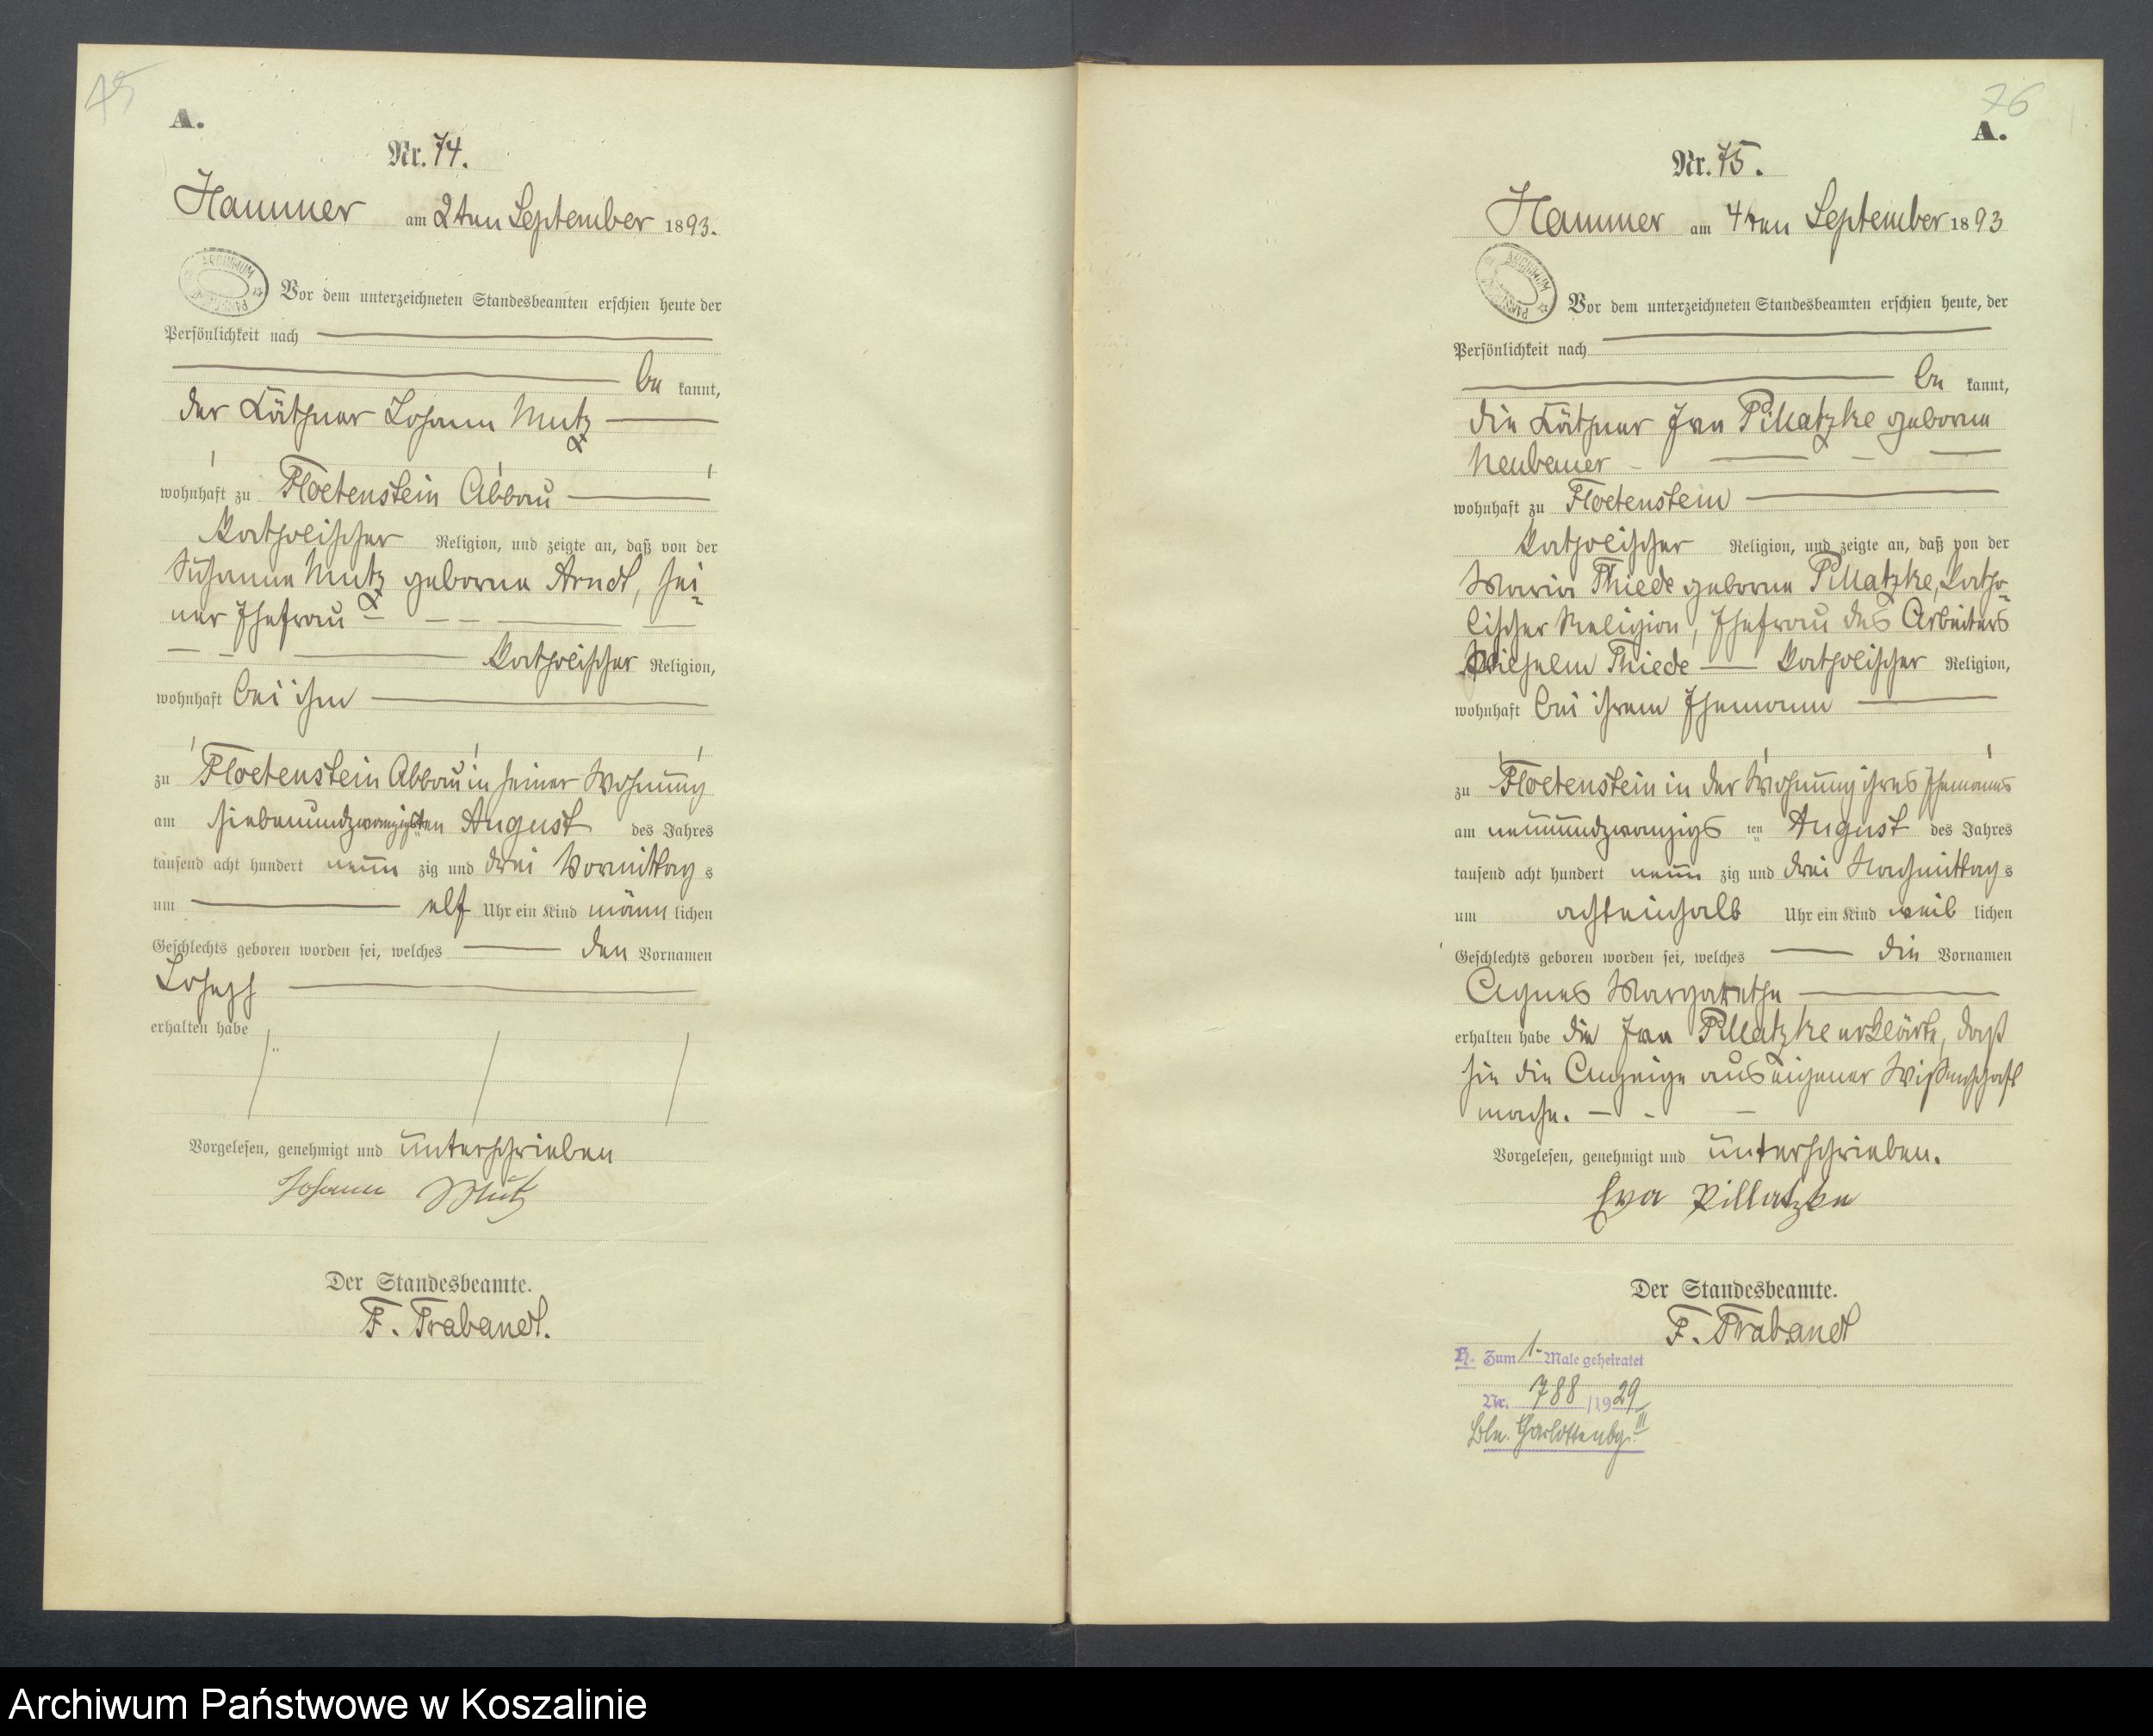 75
A.
Nr. 74.
Hammer am 2ten September 1893.
ARCHIWUM
Vor dem unterzeichneten Standesbeamten erschien heute der
Persönlichkeit nach
be kannt,
der Käthner Johann Mutz
wohnhaft zu Floetenstein Abbau
katholischer Religion, und zeigte an, daß von der
Susanna Mutz geborne Arndt, sei-
ner Ehefrau
katholischer Religion,
wohnhaft bei ihm
zu Floetenstein Abbau in seiner Wohnung
am siebenundzwanzigsten August des Jahres
tausend acht hundert neun zig und drei Vormittag s
um elf Uhr ein Kind männ lichen
Geschlechts geboren worden sei, welches den Vornamen
Joseph
erhalten habe
Vorgelesen, genehmigt und unterschrieben
Johann Mutz
Der Standesbeamte.
F. Trabandt.
76
A.
Nr. 75.
Hammer am 4ten September 1893
ARCHIWUM
Vor dem unterzeichneten Standesbeamten erschien heute, der
Persönlichkeit nach
be kannt,
die Käthner Frau Pillatzke geborne
Neubauer
wohnhaft zu Floetenstein
katholischer Religion, und zeigte an, daß von der
Maria Thiede geborne Pillatzke, katho-
lischer Religion, Ehefrau des Arbeiters
Wilhelm Thiede katholischer Religion,
wohnhaft bei ihrem Ehemann
zu Floetenstein in der Wohnung ihres Ehemanns
am neunundzwanzigs ten August des Jahres
tausend acht hundert neun zig und drei Nachmittag s
um achteinhalb Uhr ein Kind weib lichen
Geschlechts geboren worden sei, welches die Vornamen
Agnes Margarethe
erhalten habe die Frau Pillatzke erklärte, daß
sie die Anzeige aus eigener Wißenschaft
mache.
Vorgelesen, genehmigt und unterschrieben.
Eva Pillatzke
Der Standesbeamte.
F. Trabandt
H. Zum 1. Male geheiratet
Nr. 788 /1929
Bln. Charlottenbg. III
Archiwum Państwowe w Koszalinie